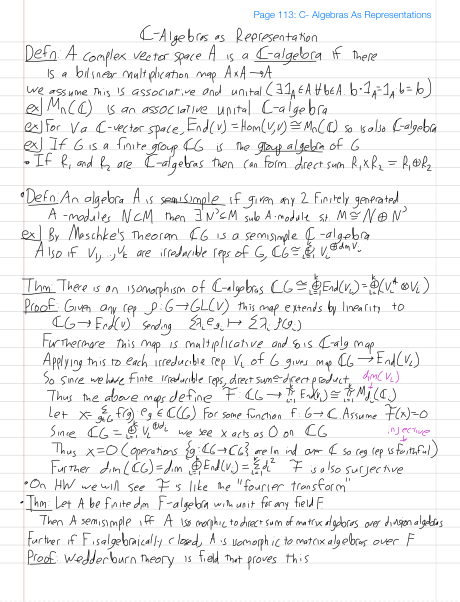 Page 113: C- Algebras As Representations
ℂ-Algebras as Representation
Defn: A complex vector space A is a ℂ-algebra if there
is a bilinear multiplication map A×A→A
we assume this is associative and unital (∃1_A∈A ∀b∈A. b·1_A=1_A b=b)
ex) M_n(ℂ) is an associative unital ℂ-algebra
ex) For V a ℂ-vector space, End(V)=Hom(V,V)≅M_n(ℂ) so is also ℂ-algebra
ex) If G is a finite group ℂG is the group algebra of G
• If R_1 and R_2 are ℂ-algebras then can form direct sum R_1×R_2 = R_1⊕R_2
• Defn An algebra A is semisimple if given any 2 Finitely generated
A-modules N⊂M then ∃ N'⊂M sub A-module s.t. M≅N⊕N'
ex) By Maschke's Theorem ℂG is a semisimple ℂ-algebra
Also if V_1,...,V_k are irreducible reps of G, ℂG≅⊕ V_i^{⊕dim V_i}
Thm There is an isomorphism of ℂ-algebras ℂG≅⊕End(V_i)=⊕(V_i*⊗V_i)
Proof: Given any rep ρ:G→GL(V) this map extends by linearity to
ℂG→End(V) sending Σλ_i e_{g_i} ↦ Σλ_i ρ(g_i)
Furthermore this map is multiplicative and so is ℂ-alg map
Applying this to each irreducible rep V_i of G gives map ℂG→End(V_i)
So since we have finite irreducible reps, direct sum=direct product dim(V_i)
Thus the above maps define F: ℂG→∏End(V_i)≅∏M_{d_i}(ℂ)
Let x=Σ f(g)·e_g∈ℂ(G) For some function f:G→ℂ Assume F(x)=0
Since ℂG=⊕V_i^{⊕d_i} we see x acts as 0 on ℂG injective
Thus x=0 (operations {g:ℂG→ℂG} are lin ind over ℂ so reg rep is faithful)
Further dim(ℂG)=dim ⊕End(V_i)=Σd_i² F is also surjective
• On HW we will see F is like the "fourier transform"
• Thm: Let A be finite dim F-algebra with unit for any field F
Then A semisimple iff A isomorphic to direct sum of matrix algebras over division algebras
Further if F is algebraically closed, A is isomorphic to matrix algebras over F
Proof: Wedderburn theory is field that proves this